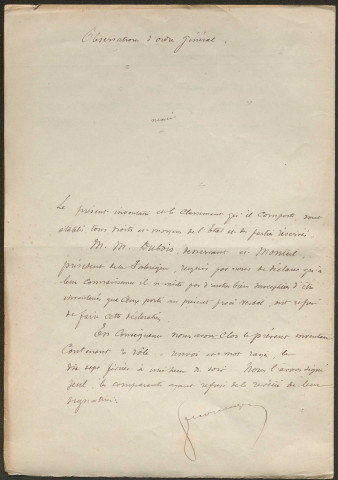 Observations d'ordre général.
néant
Le présent inventaire et le classement qu'il comporte, sont
établis tous droits et moyens de l'État et de parties réservés.
M. M. Dubois, desservant et Monteil,
président de la Fabrique, requis par nous de déclarer qu'à
leur connaissance il n'existe pas d'autres biens susceptibles d'être
inventoriés que ceux portés au présent procès verbal, ont refusé
de faire cette déclaration.
En conséquence nous avons clos le présent inventaire
contenant rôle, renvoi mot rayé, le
dix sept février à heure de soir. Nous l'avons signé
seul, les comparants ayant refusé de le revêtir de leur
signature.